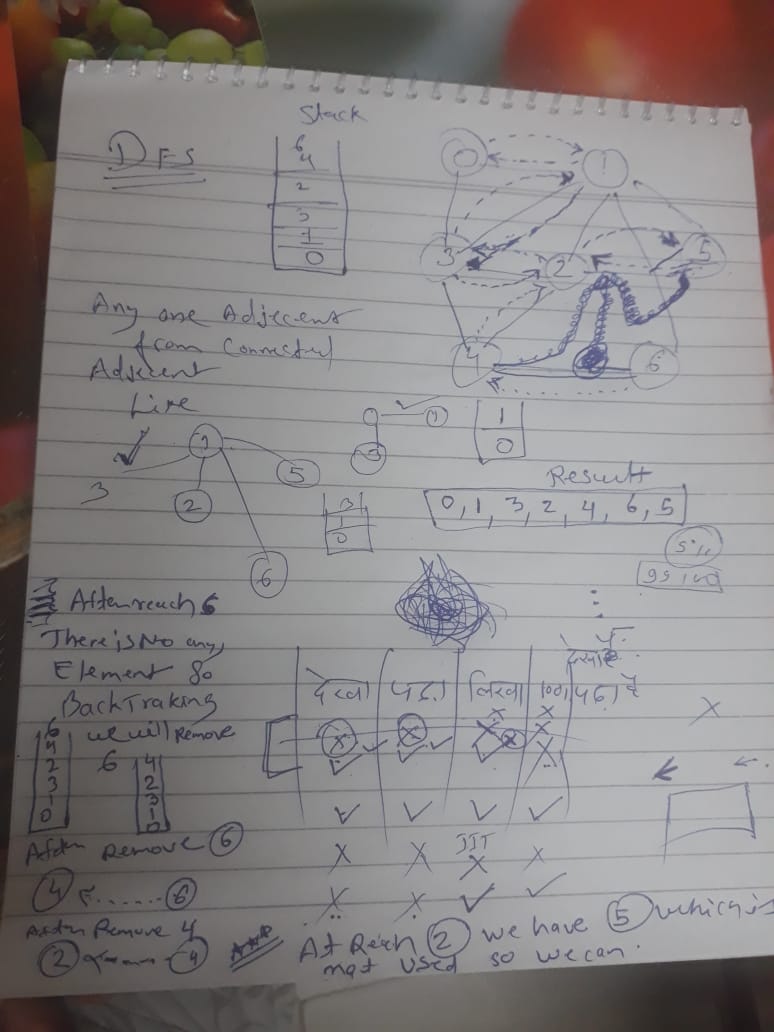 Stack
1) DFS
6
4
2
3
1
0
0
1
3
2
5
4
6
Any one Adjecent
from connected
Adjecent
Like
1
3
2
5
6
0
1
3
1
0
3
1
0
Result
0, 1, 3, 2, 4, 6, 5
5
99 100
After reach 6
There is No any
Element So
BackTraking
we will Remove
6
4
2
3
1
0
6
4
2
3
1
0
देखा
पढ़ा
लिखा
100%
After Remove 6
4 ← 6
After Remove 4
2 ← 4
At Reach 2 we have 5 which is
not used so we can.